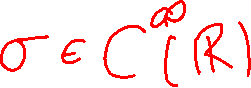 σ ∈ C^∞(ℝ)